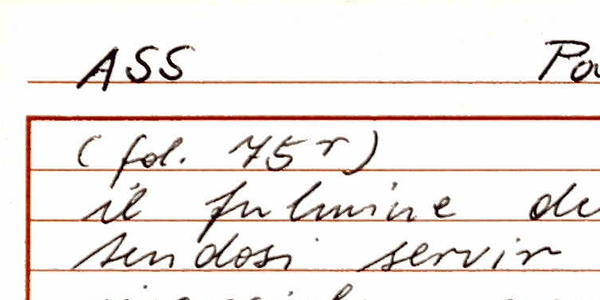 ASS
(fol. 75r)
il fulmine
sendosi servir